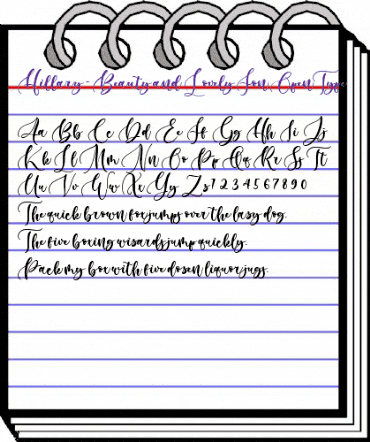 Hillary - Beauty and Lovely Font Open Type
Aa Bb Cc Dd Ee Ff Gg Hh Ii Jj
Kk Ll Mm Nn Oo Pp Qq Rr Ss Tt
Uu Vv Ww Xx Yy Zz 1 2 3 4 5 6 7 8 9 0
The quick brown fox jumps over the lazy dog.
The five boxing wizards jump quickly.
Pack my box with five dozen liquor jugs.